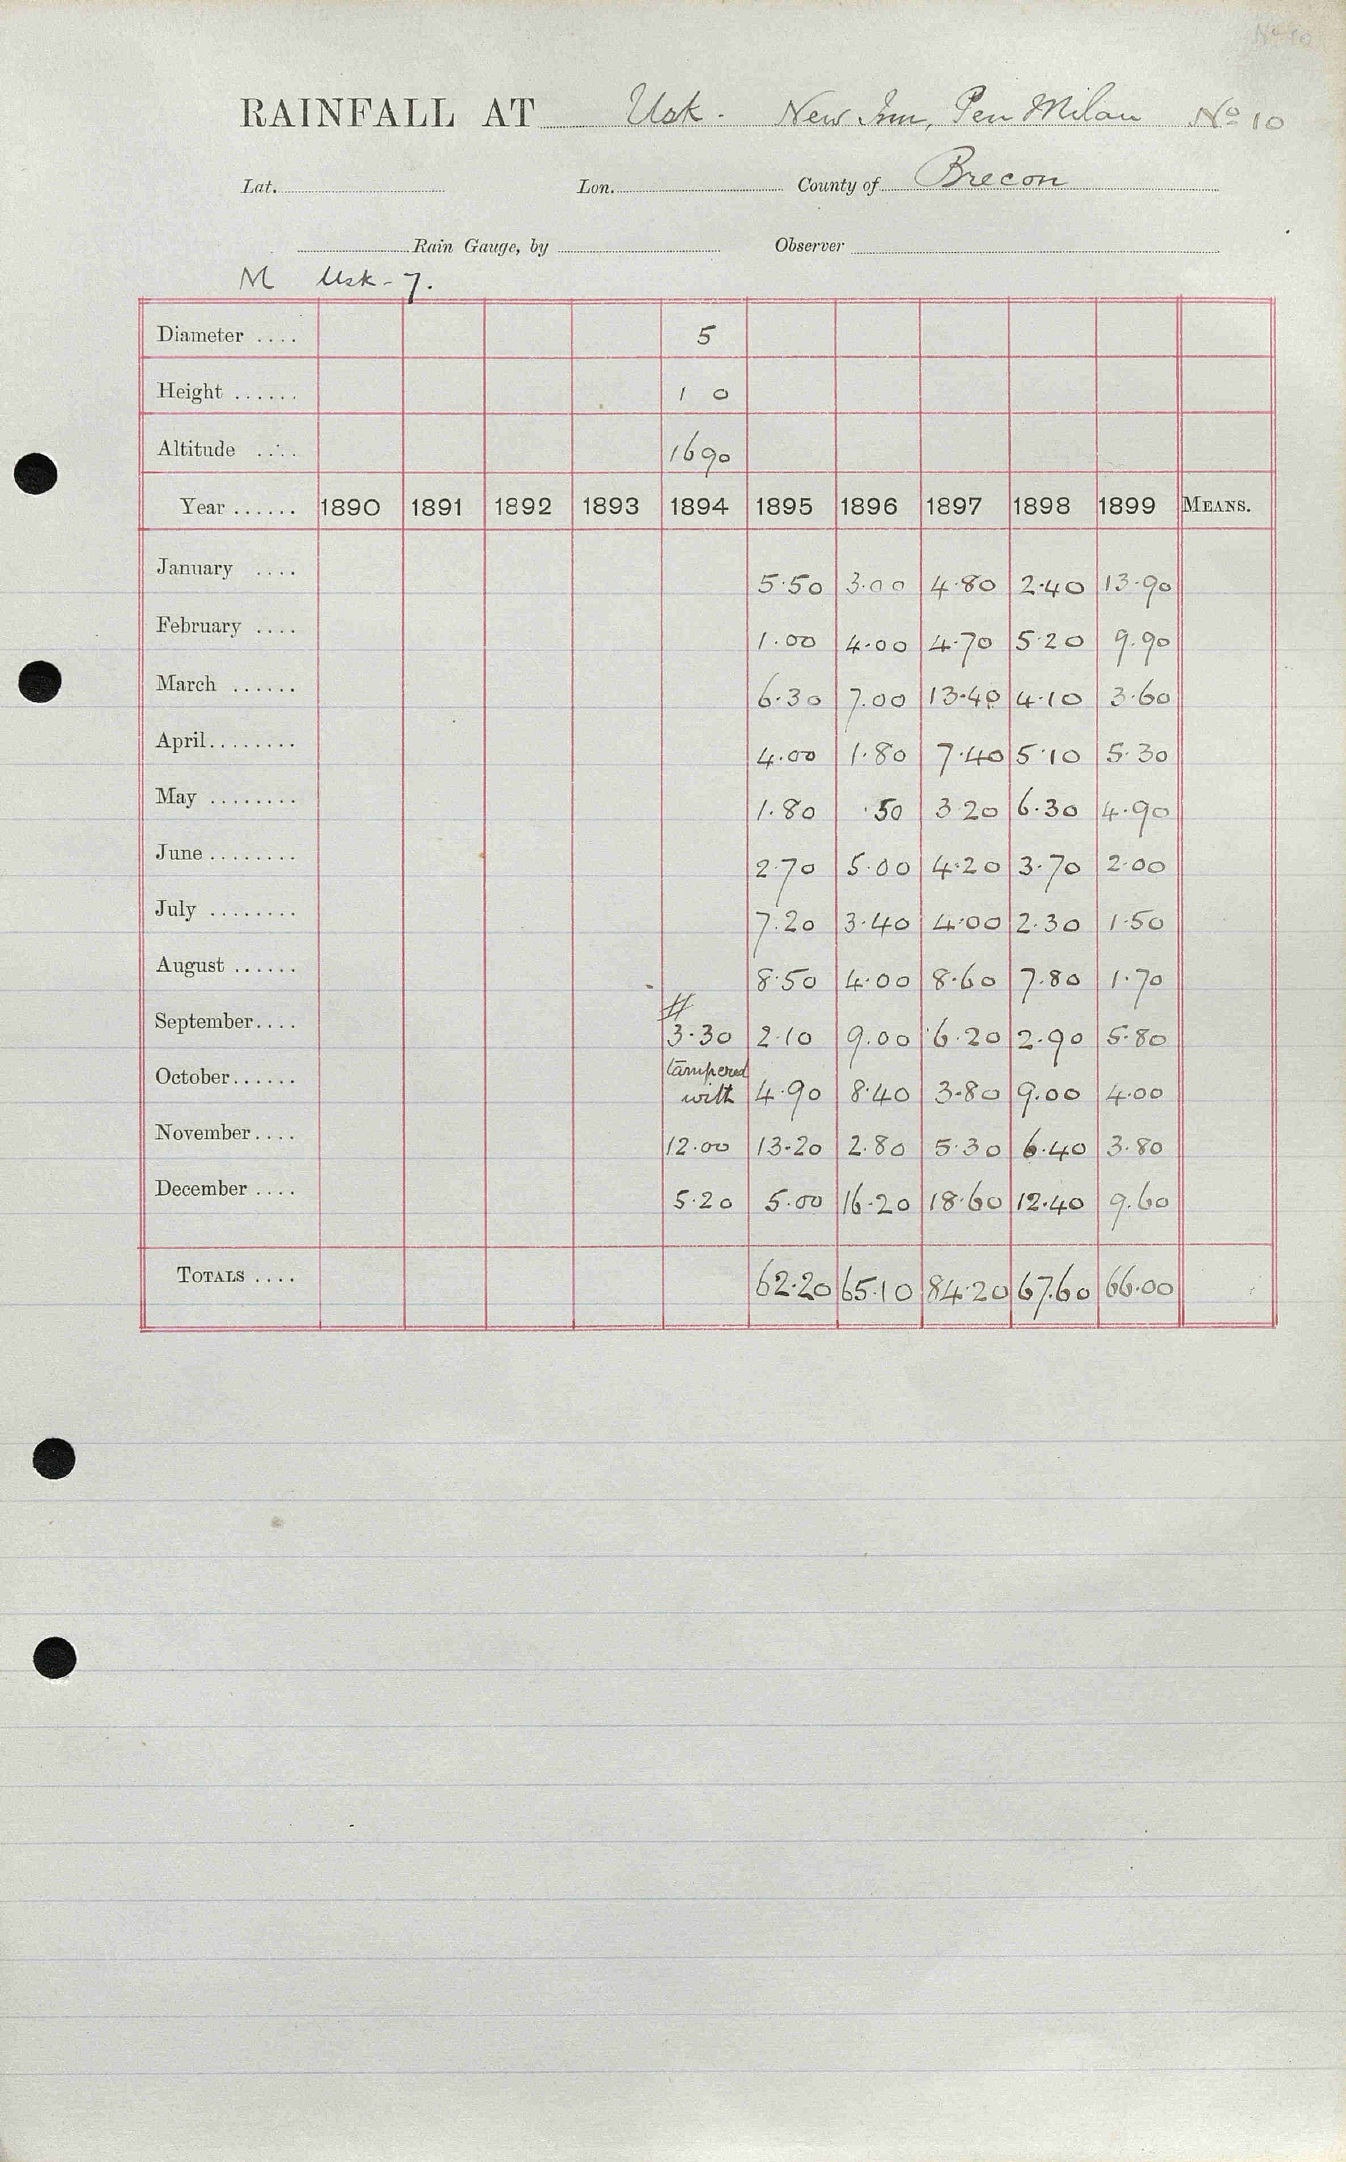 No 10
RAINFALL AT Usk. New Inn, Pen Milan No 10
Lat. Lon. County of Brecon
Rain Gauge, by Observer
M Usk - 7.
Diameter .... 5
Height ...... 1 0
Altitude .... 1690
Year ...... 1890 1891 1892 1893 1894 1895 1896 1897 1898 1899 MEANS.
January .... 5.50 3.00 4.80 2.40 13.90
February .... 1.00 4.00 4.70 5.20 9.90
March ...... 6.30 7.00 13.40 4.10 3.60
April........ 4.00 1.80 7.40 5.10 5.30
May ........ 1.80 .50 3.20 6.30 4.90
June ........ 2.70 5.00 4.20 3.70 2.00
July ........ 7.20 3.40 4.00 2.30 1.50
August ...... 8.50 4.00 8.60 7.80 1.70
#
September.... 3.30 2.10 9.00 6.20 2.90 5.80
October...... tampered with 4.90 8.40 3.80 9.00 4.00
November.... 12.00 13.20 2.80 5.30 6.40 3.80
December .... 5.20 5.00 16.20 18.60 12.40 9.60
TOTALS .... 62.20 65.10 84.20 67.60 66.00